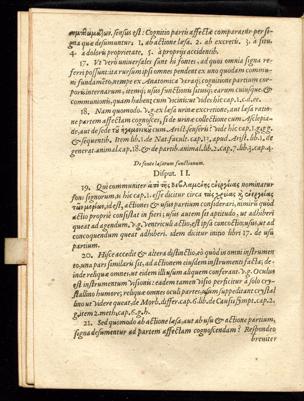 sensus est: Cognitio partis affectæ comparatur per si-
gna quæ desumuntur; 1. ab actione læsa. 2. ab excretis. 3. a situ.
4. a doloris proprietate. 5. a propriis accidentib.
17. Ut vero universales sunt hi fontes, ad quos omnia signa re-
ferri possunt: ita rursum ipsi omnes pendent ex uno quodam commu-
ni fundamēto, nempe ex Anatomica; cognitione partium cor-
poris internarum; itemq; usus functionis situusq; earum cuiusque &
communionis, quam habent cum vicinis: ut videt hic cap. 1. c. d. ec.
18. Nam quomodo v.g. ex urinæ excretione, aut læsa ratio-
ne partem affectam cognosces, si de urinæ collectione cum Asclepia-
de, aut de sede cum Aristl. senseris? vide hic cap. 1. g. gg.
& sequentib. Item lib. 1. de Nat. facult. cap. 17, apud Aristl. lib. 1. de
generat. animal. cap. 18. & de partib. animal. lib. 2. cap. 7. lib. 3. cap. 4.
De fonte læsarum functionum.
Disput. II.
19. Qui communiter nominatur
fons signorum, is hic cap. 1. ex se duplex est; dicitur circa
id est, actiones & usus partium considerari, nimirum quod
actio proprie consistat in fieri; usus autem sit aptitudo, ut adhiberi
queat ad agendum. V.g. ventriculi actio, est ipsa concoctio; usus, ut ad
concoquendum queat adhiberi. idem dicitur imo libri 17. de usu
partium.
20. Hisce accedit & altera distinctio, eo quod in omni instrumen-
to, una pars similaris sit, ad actionem eiusdem instrumenti facta; de-
inde reliquæ omnes, ut eidem illiusum aliquem conferant. V.g. Oculus
est instrumentum visionis: eadem tamen visio perficitur à solo cry-
stallino humore; reliquæ omnes oculi partes, usum suppeditant crystal-
lino ut videre queat. de Morb. differ. cap. 6. lib. de Causis sympt. cap. 2.
g. item 2. meth. cap. 6. g. h.
21. Sed quomodo ab actione læsa, aut ab usu & actione partium,
signa desumentur ad partem affectam cognoscendam? Respondeo
breuiter